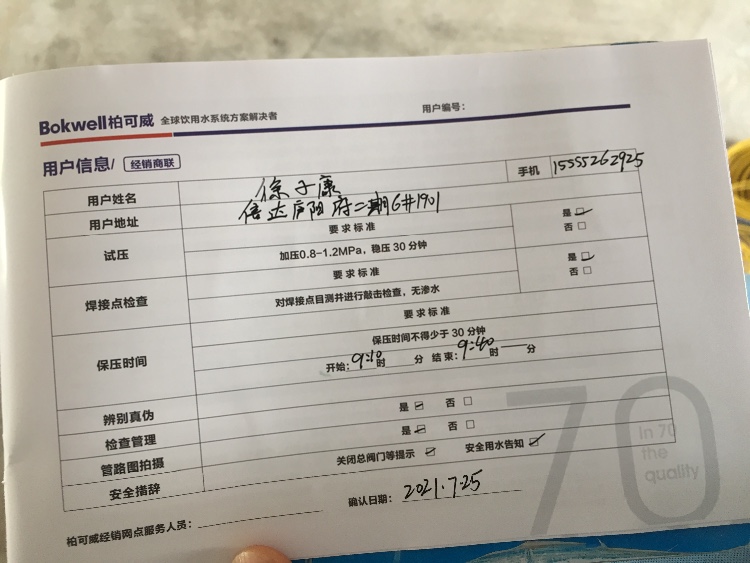 Bokwell柏可威 全球饮用水系统方案解决者 用户编号：
用户信息/ 经销商联
用户姓名 徐子康 手机 15555262925
用户地址 信达庐阳府二期6#1901
试压 要求标准 是 否
加压0.8-1.2MPa，稳压30分钟
焊接点检查 要求标准 是 否
对焊接点目测并进行敲击检查，无渗水
保压时间 要求标准
保压时间不得少于30分钟
开始：9:10时 分 结束：9:40时 分
辨别真伪 是 否
检查管理 是 否
管路图拍摄 关闭总阀门等提示 安全用水告知
安全措辞
确认日期：2021.7.25
柏可威经销网点服务人员：
70
in 70
the
quality